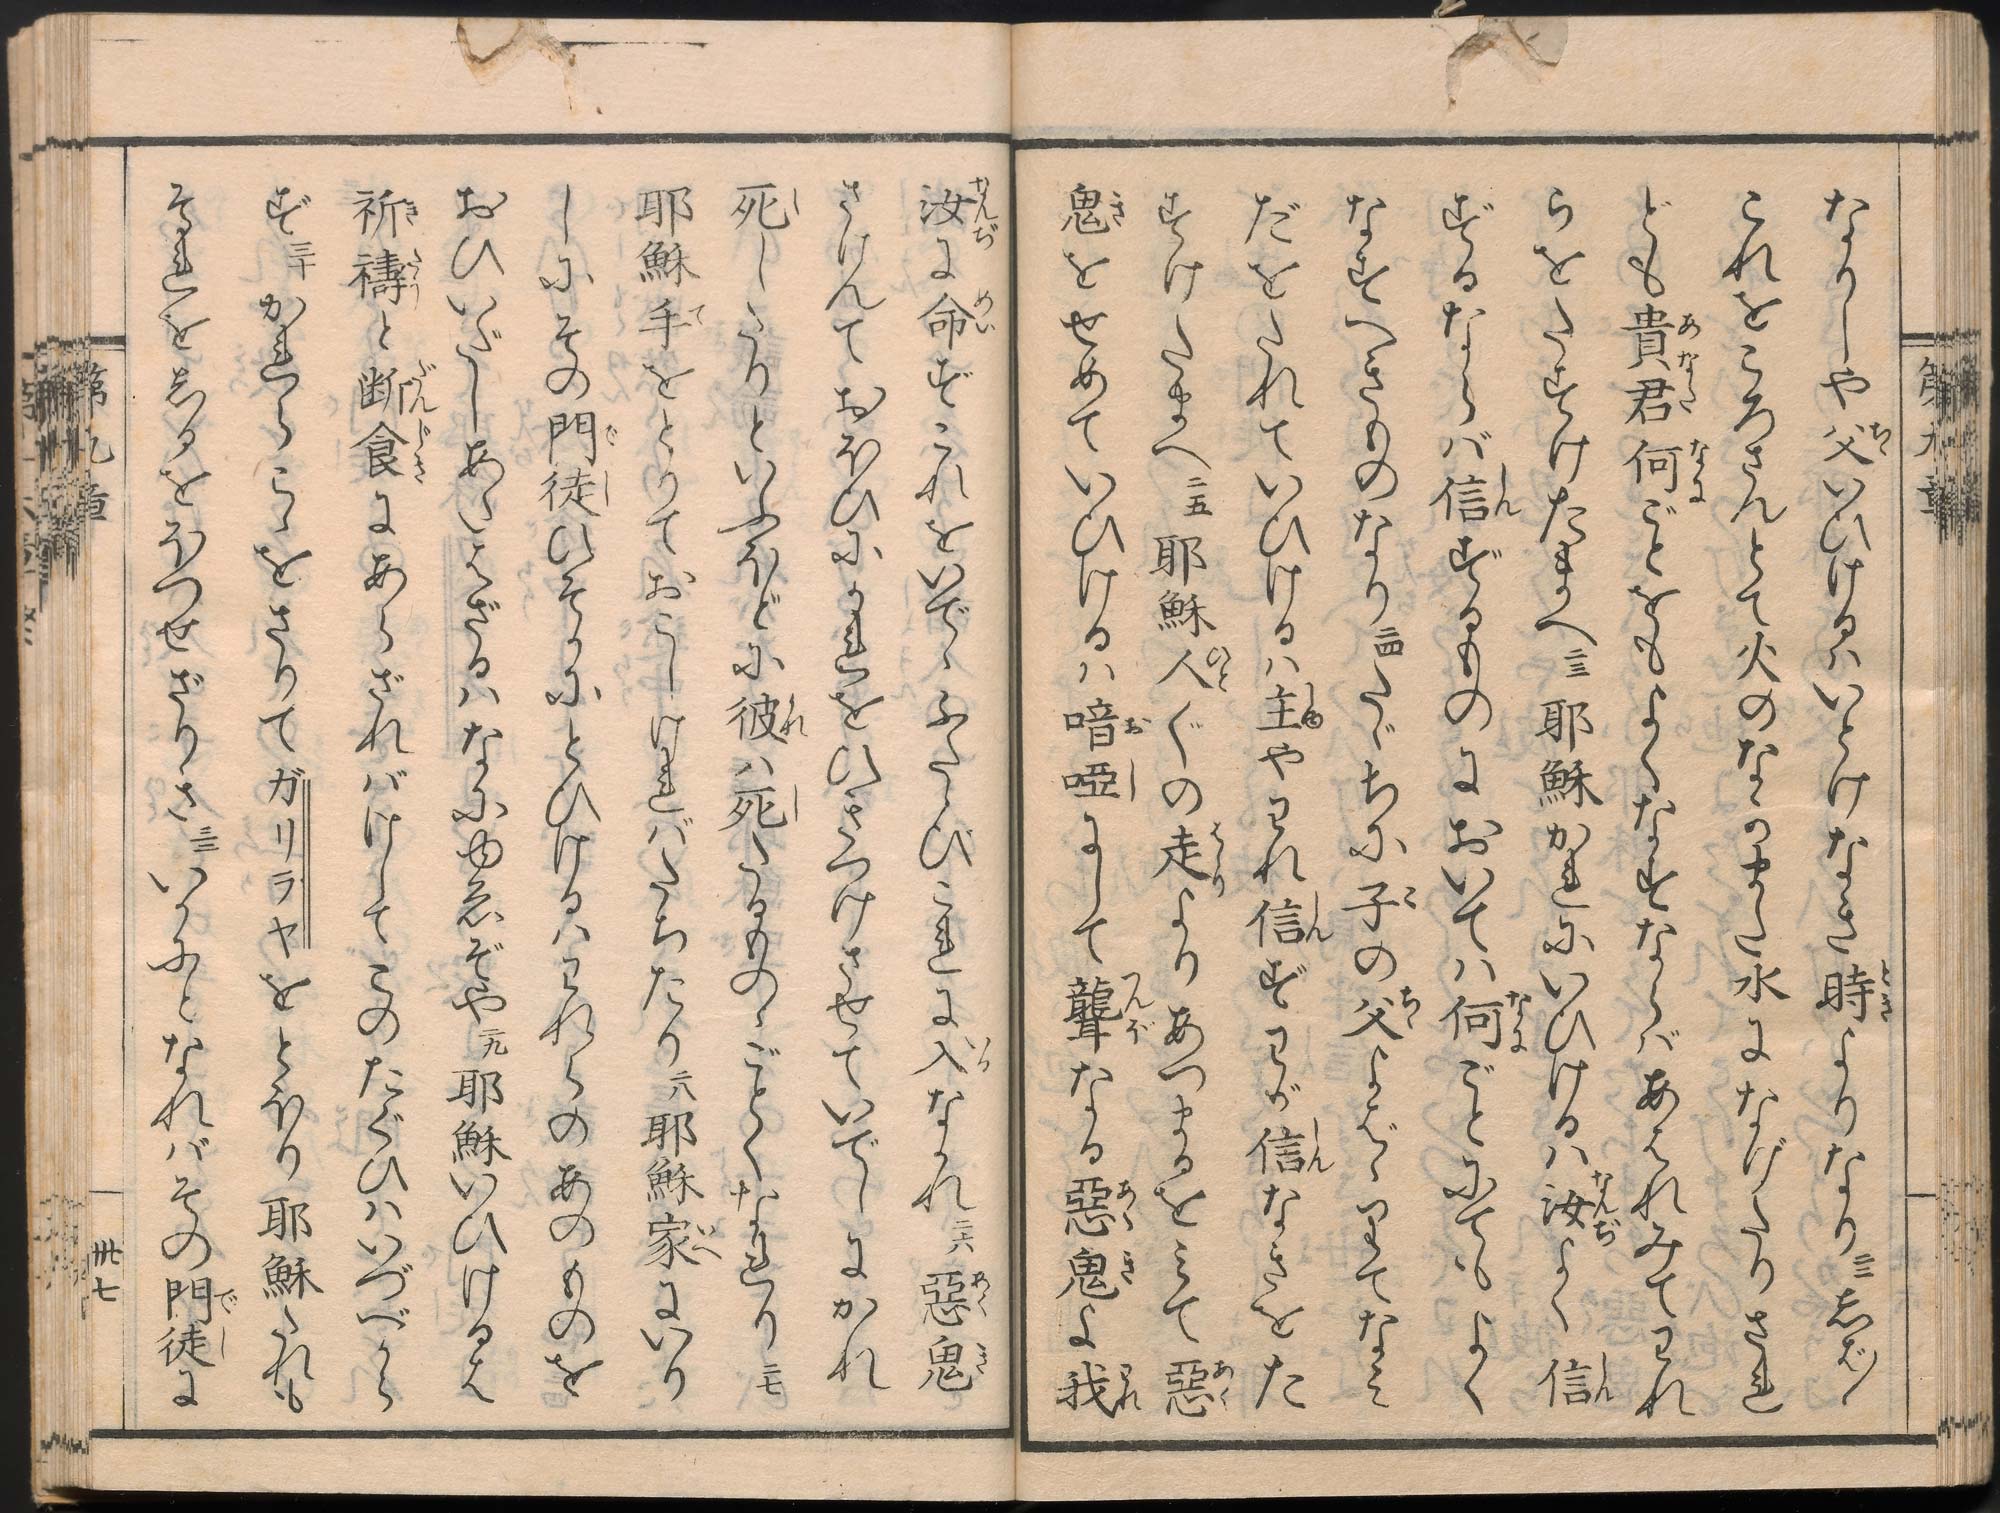 なりしや父いひけるハいとけなき時よりなり二二しば〱
これをころさんとて火のなかまた水になげたりされ
ども貴君何ごとをもよくなすならバあはれみてわれ
らをたすけたまへ二三耶穌かれにいひけるハ汝よく信
ずるならバ信ずるものにおいてハ何ごとにてもよく
なすべきものなり二四たゞちに子の父よばゝりてなみ
だをたれていひけるハ主やわれ信ずわが信なきをた
すけたまへ二五耶穌人〴〵の走よりあつまるをみて惡
鬼をせめていひけるハ喑啞にして聾なる惡鬼よ我
汝に命ずこれをいでゝふたゝびこれに入なかれ二六惡鬼
さけんでおほひにかれをひきつけさせていでしにかれ
死したりといふほどに彼ハ死たるものゝごとくなれり二七
耶穌手をとりておこしけれバたちたり二八耶穌家にいり
しにその門徒ひそかにとひけるハわれらのあのものを
おひいだしあたはざるハなにゆゑぞや二九耶穌いひけるは
祈禱と断食にあらざれバけしてこのたぐひハいづべから
ず三十かれらこゝをさりてガリラヤをとほり耶穌たれも
それをしるをほつせざりき三一いかにとなれバその門徒に
第九章
第九章
卅七